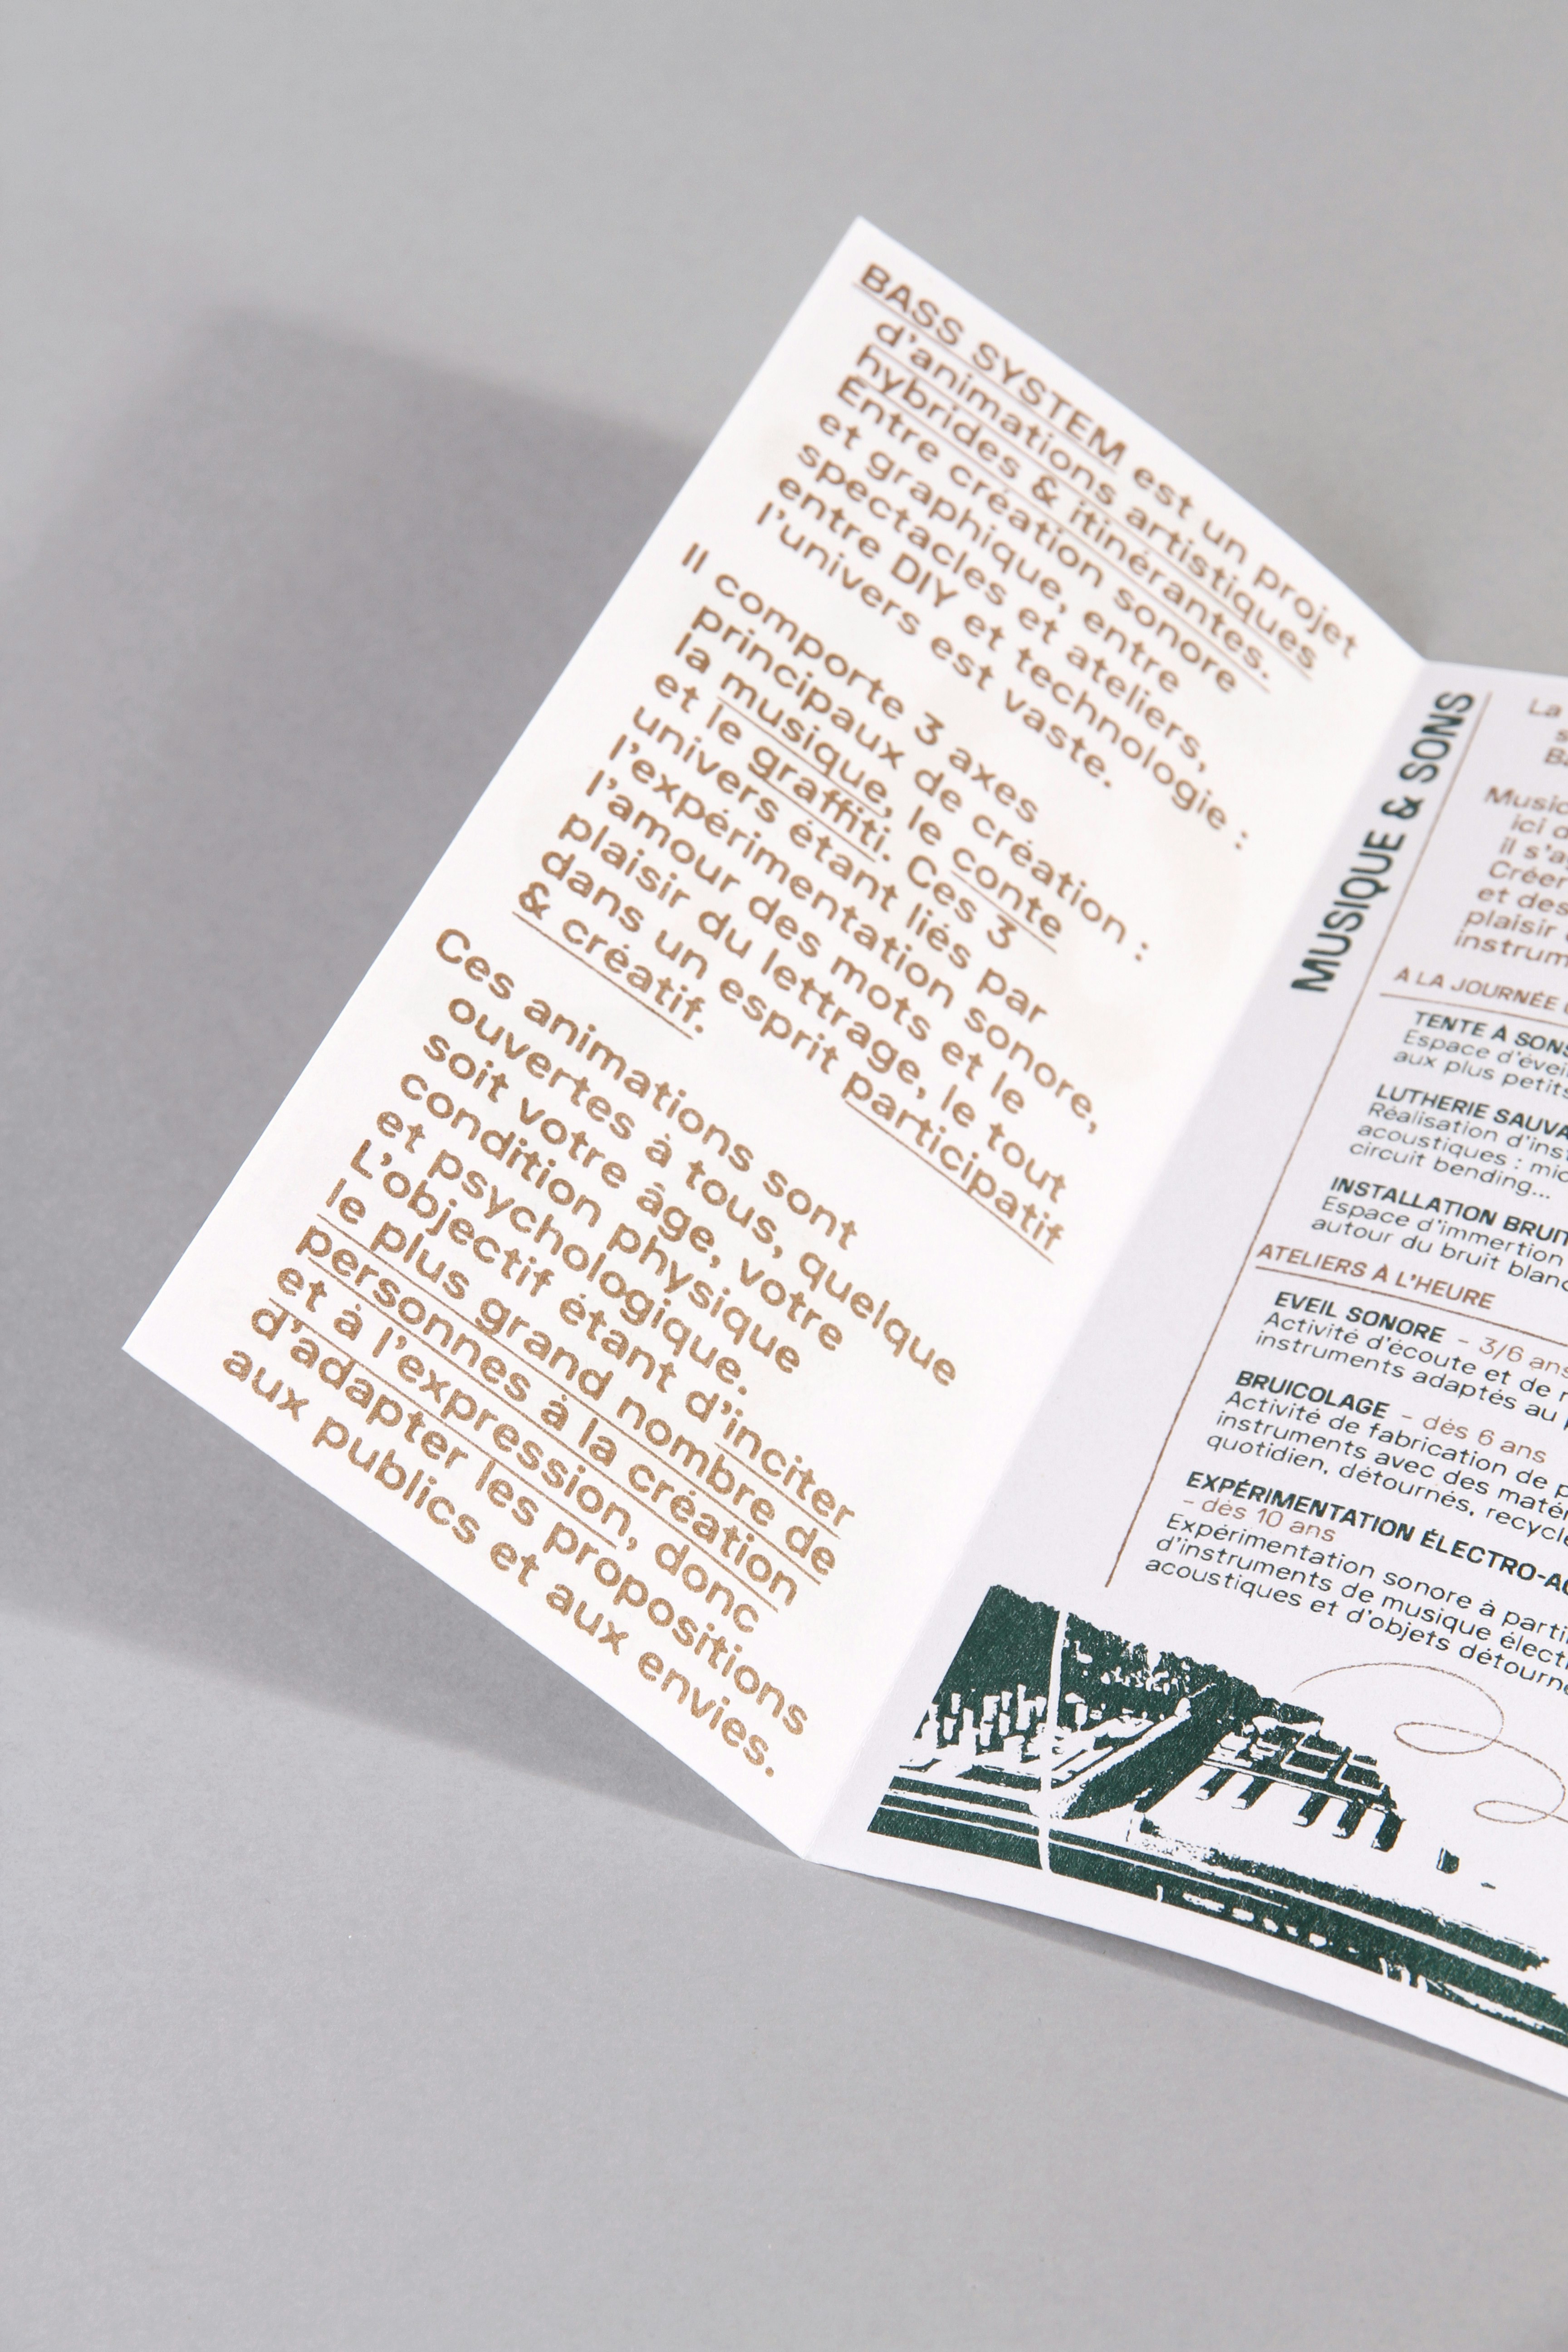 BASS SYSTEM est un projet
d'animations artistiques
hybrides & itinérantes.
Entre création sonore
et graphique, entre
spectacles et ateliers,
entre DIY et technologie :
l'univers est vaste.
Il comporte 3 axes
principaux de création :
la musique, le conte
et le graffiti. Ces 3
univers étant liés par
l'expérimentation sonore,
l'amour des mots et le
plaisir du lettrage, le tout
dans un esprit participatif
& créatif.
Ces animations sont
ouvertes à tous, quelque
soit votre âge, votre
condition physique
et psychologique.
L'objectif étant d'inciter
le plus grand nombre de
personnes à la création
et à l'expression, donc
d'adapter les propositions
aux publics et aux envies.
MUSIQUE & SONS
La
ici
il s'a
Créer
et des
plaisir
instrum
À LA JOURNÉE
TENTE À SONS
Espace d'éve
aux plus petits
LUTHERIE SAUVA
Réalisation d'inst
acoustiques : mic
circuit bending...
INSTALLATION BRUI
Espace d'immertion
autour du bruit blanc
ATELIERS À L'HEURE
EVEIL SONORE – 3/6 ans
Activité d'écoute et de
instruments adaptés au
BRUICOLAGE – dès 6 ans
Activité de fabrication de
instruments avec des maté
quotidien, détournés, recycl
EXPÉRIMENTATION ÉLECTRO-A
– dès 10 ans
Expérimentation sonore à parti
d'instruments de musique élect
acoustiques et d'objets détourn